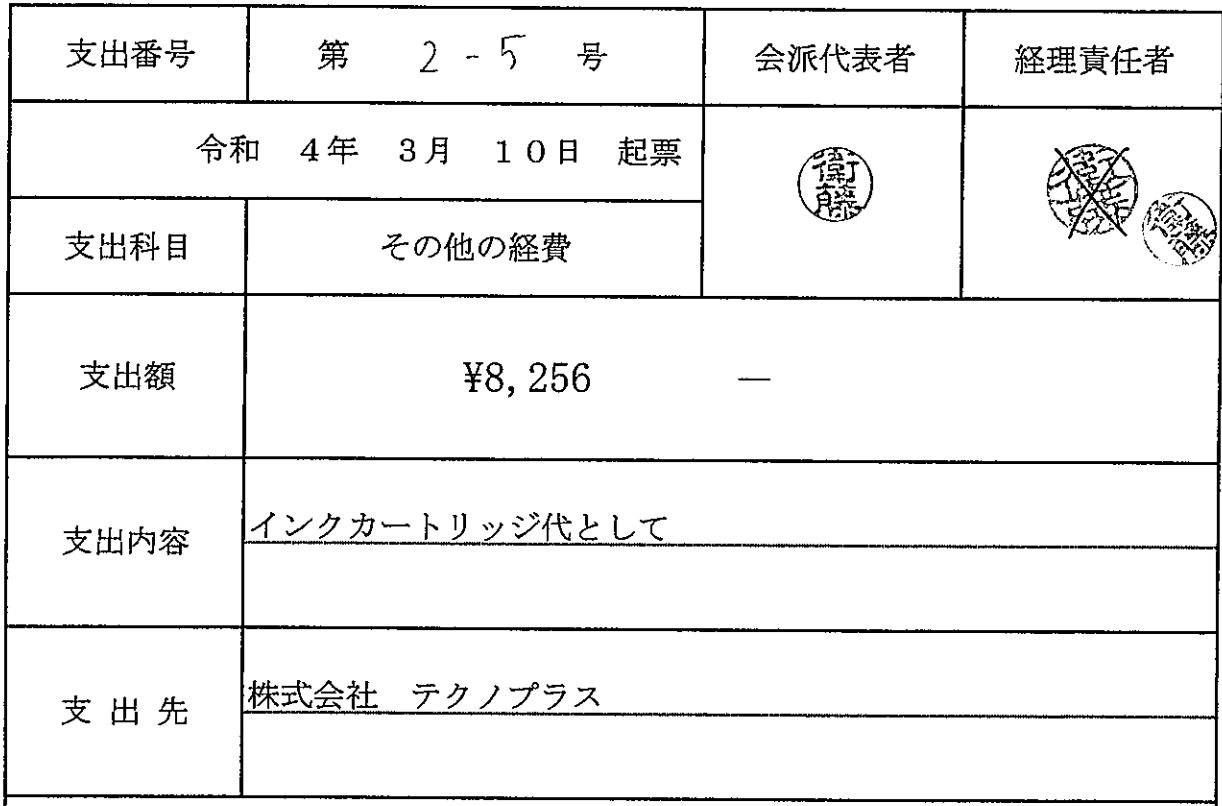 支出番号 第 2-5 号 会派代表者 経理責任者
令和 4年 3月 10日 起票
衛藤
支出科目 その他の経費
支出額 ¥8,256 ―
支出内容 インクカートリッジ代として
支出先 株式会社 テクノプラス